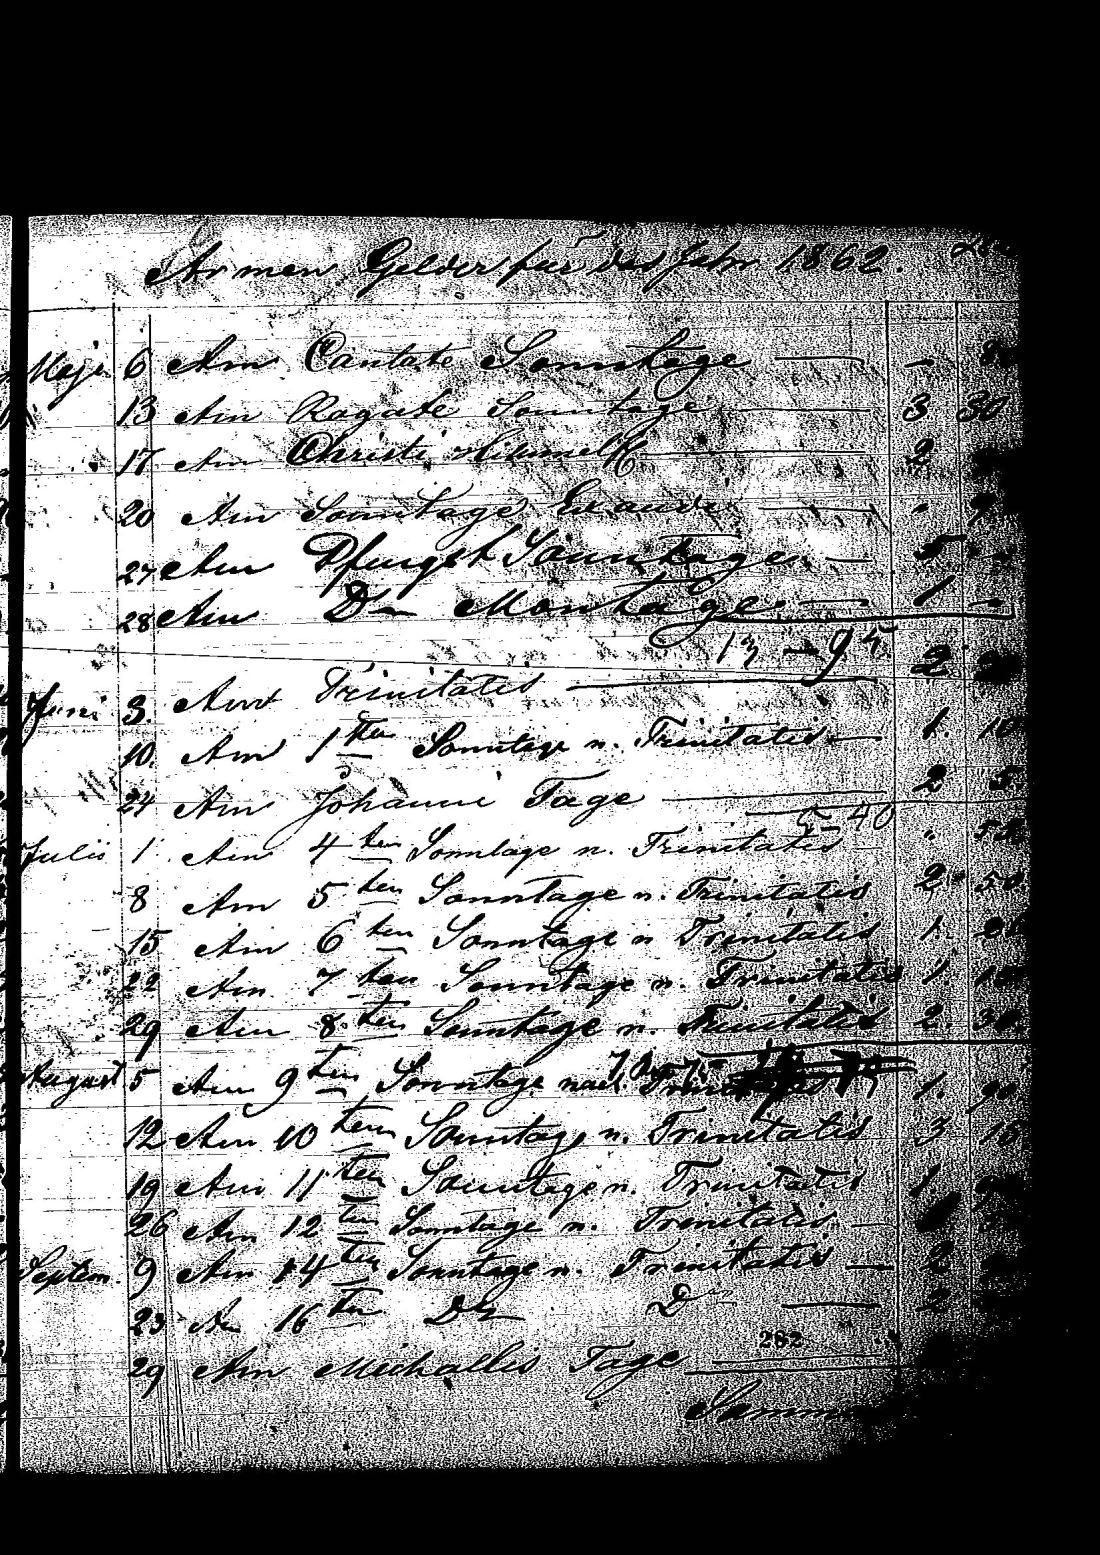 Armen Gelder für das Jahr 1862.
Maji 6 Am Cantate Sonntage — -
13 Am Rogate Sonntage — 3 30
17 Am Christi Himmelf. — 2
20 Am Sonntage Exaudi — -
27 Am Pfingst Sonntage — 5 -
28 Am Do Montage — 1 -
13 - 95
Juni 3. Am Trinitatis — 2
10. Am 1ten Sonntage n. Trinitatis — 1. 10
24 Am Johanni Tage — 2 5
5 - 40
Julii 1 Am 4ten Sonntage n. Trinitatis
8 Am 5ten Sonntage n. Trinitatis 2 50
15 Am 6ten Sonntage n Trinitatis 1.
22 Am 7ten Sonntage n. Trinitatis 1.
29 Am 8ten Sonntage n. Trinitatis 2. 30
August 5 Am 9ten Sonntage nach Trinitatis 1. 90
12 Am 10ten Sonntage n. Trinitatis 3 15
19 Am 11ten Sonntage n. Trinitatis 1
26 Am 12ten Sonntage n. Trinitatis —
Septem. 9 Am 14ten Sonntage n. Trinitatis — 2
23 Am 16ten Do Do — 2
282
29 Am Michaelis Tage
Summa